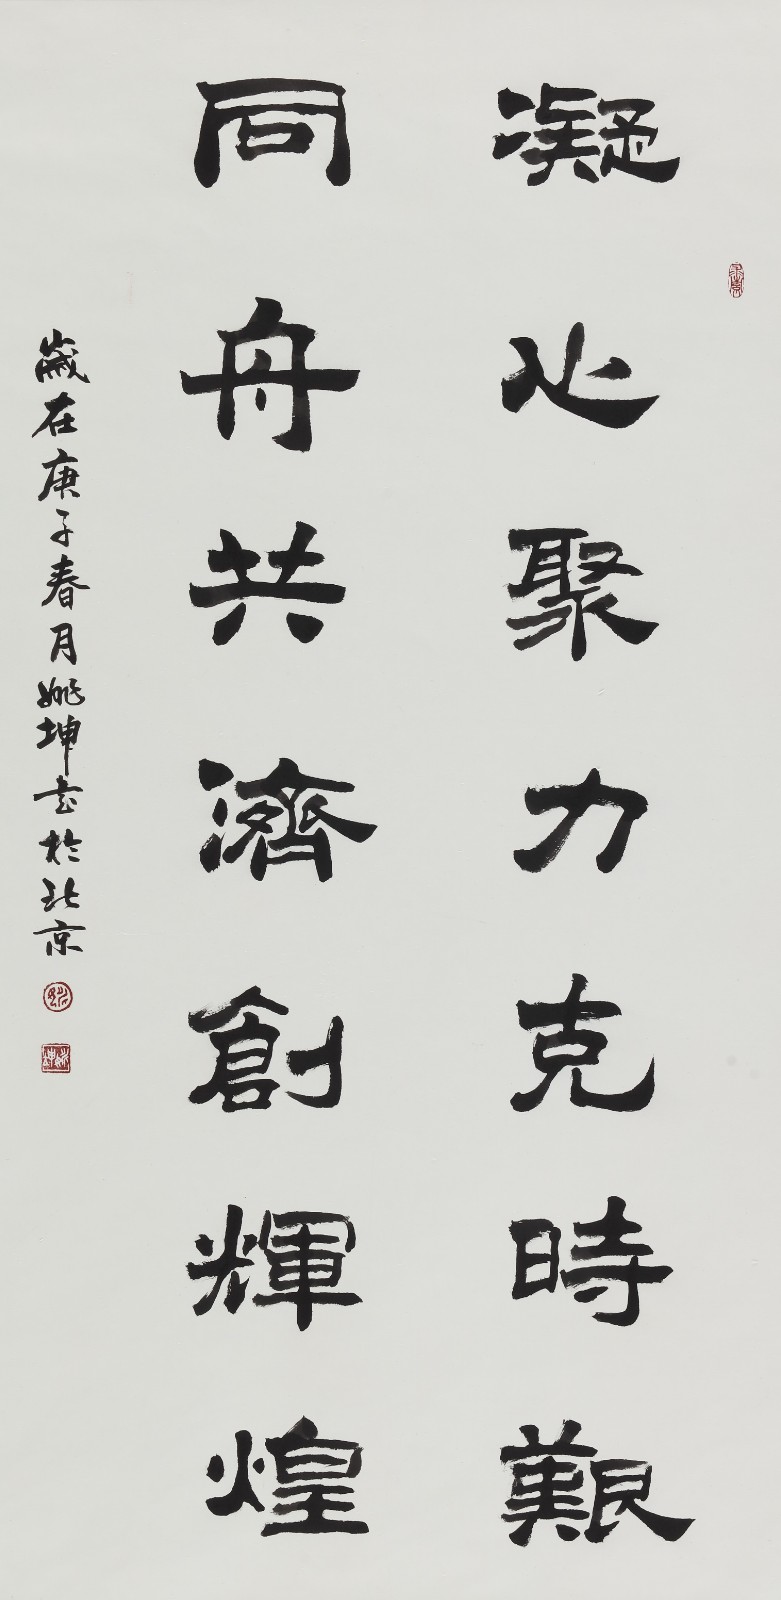 凝心聚力克時艱
同舟共濟創輝煌
歲在庚子春月姚坤书於北京